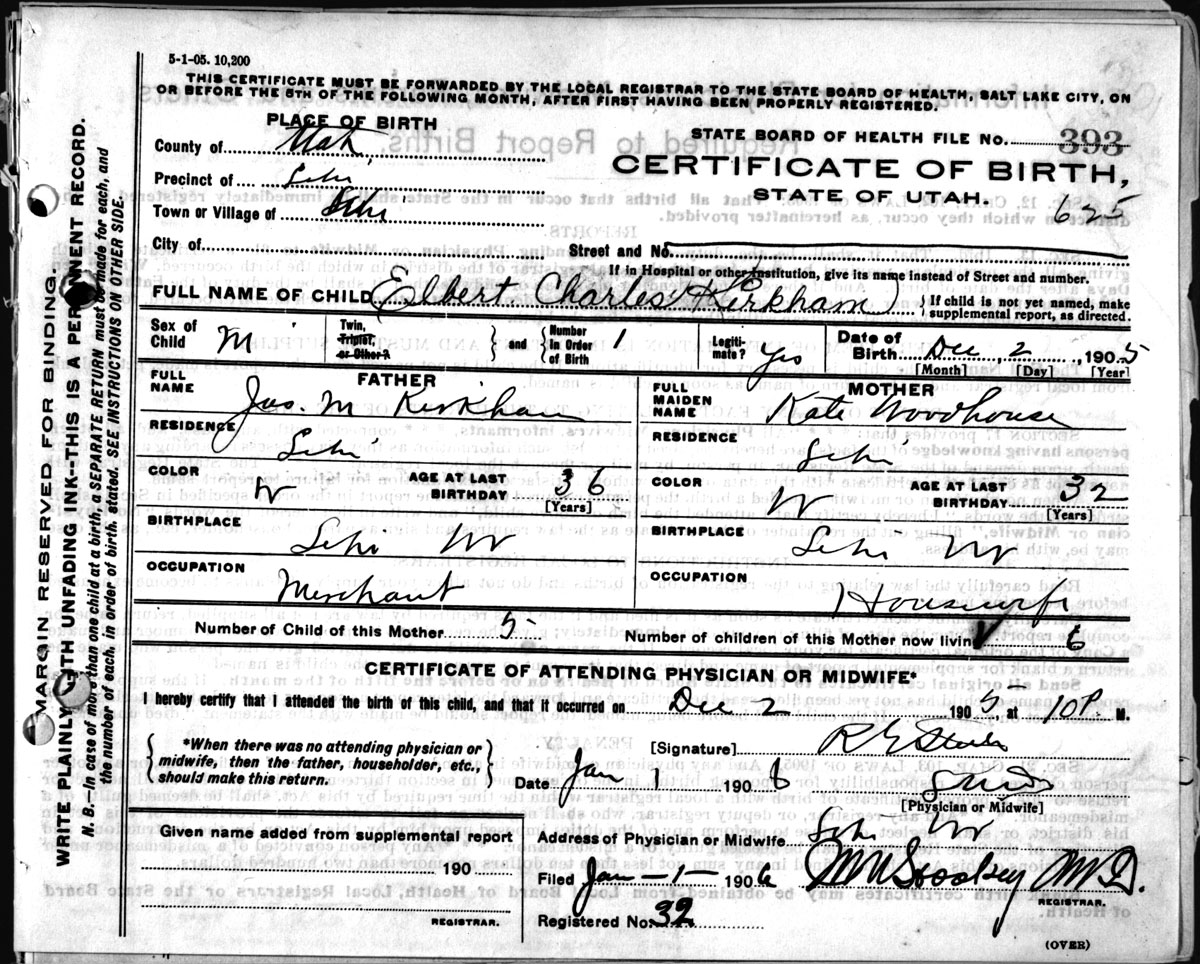 5-1-05. 10,200
THIS CERTIFICATE MUST BE FORWARDED BY THE LOCAL REGISTRAR TO THE STATE BOARD OF HEALTH, SALT LAKE CITY, ON
OR BEFORE THE 5TH OF THE FOLLOWING MONTH, AFTER FIRST HAVING BEEN PROPERLY REGISTERED.
MARGIN RESERVED FOR BINDING.
WRITE PLAINLY WITH UNFADING INK--THIS IS A PERMANENT RECORD.
N. B.--In case of more than one child at a birth, a SEPARATE RETURN must be made for each, and
the number of each, in order of birth, stated. SEE INSTRUCTIONS ON OTHER SIDE.
PLACE OF BIRTH
County of Utah
Precinct of Lehi
Town or Village of Lehi
City of
STATE BOARD OF HEALTH FILE NO. 393
CERTIFICATE OF BIRTH,
STATE OF UTAH.
625
Street and No.
If in Hospital or other Institution, give its name instead of Street and number.
FULL NAME OF CHILD Elbert Charles Kirkham { If child is not yet named, make
supplemental report, as directed.
Sex of Child M Twin, Triplet, or Other? } and { Number in Order of Birth 1 Legiti-mate? Yes Date of Birth Dec 2, 1905
[Month] [Day] [Year]
FATHER
FULL NAME Jas. M Kirkham
RESIDENCE Lehi
COLOR W AGE AT LAST BIRTHDAY 36
[Years]
BIRTHPLACE Lehi
OCCUPATION Merchant
MOTHER
FULL MAIDEN NAME Kate Woodhouse
RESIDENCE Lehi
COLOR W AGE AT LAST BIRTHDAY 32
[Years]
BIRTHPLACE Lehi
OCCUPATION Housewife
Number of Child of this Mother 5 Number of children of this Mother now livin 6
CERTIFICATE OF ATTENDING PHYSICIAN OR MIDWIFE*
I hereby certify that I attended the birth of this child, and that it occurred on Dec 2 1905, at 10 P. M.
{ *When there was no attending physician or
midwife, then the father, householder, etc.,
should make this return. }
[Signature] R E Steele
Date Jan 1 1906
[Physician or Midwife]
Given name added from supplemental report
190
REGISTRAR.
Address of Physician or Midwife Lehi
Filed Jan - 1 - 1906 M.D.
REGISTRAR.
Registered No. 32
(OVER)